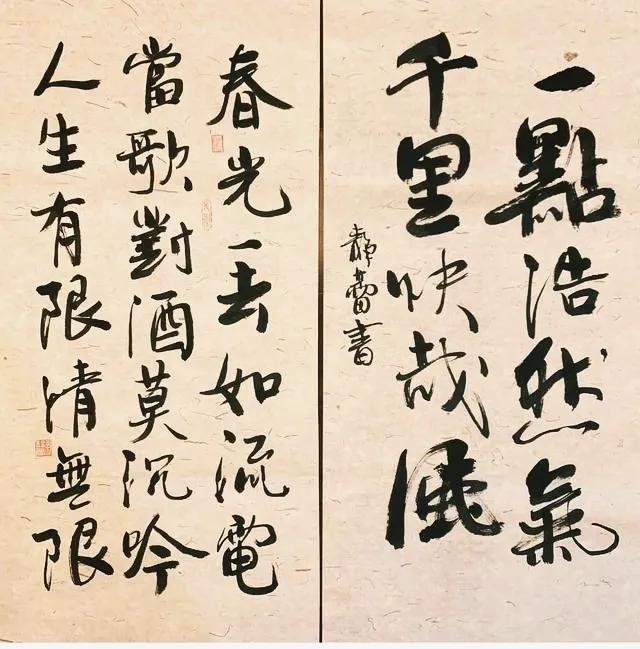 一點浩然氣
千里快哉風
靜蕾書
春光一去如流電
當歌對酒莫沉吟
人生有限情無限